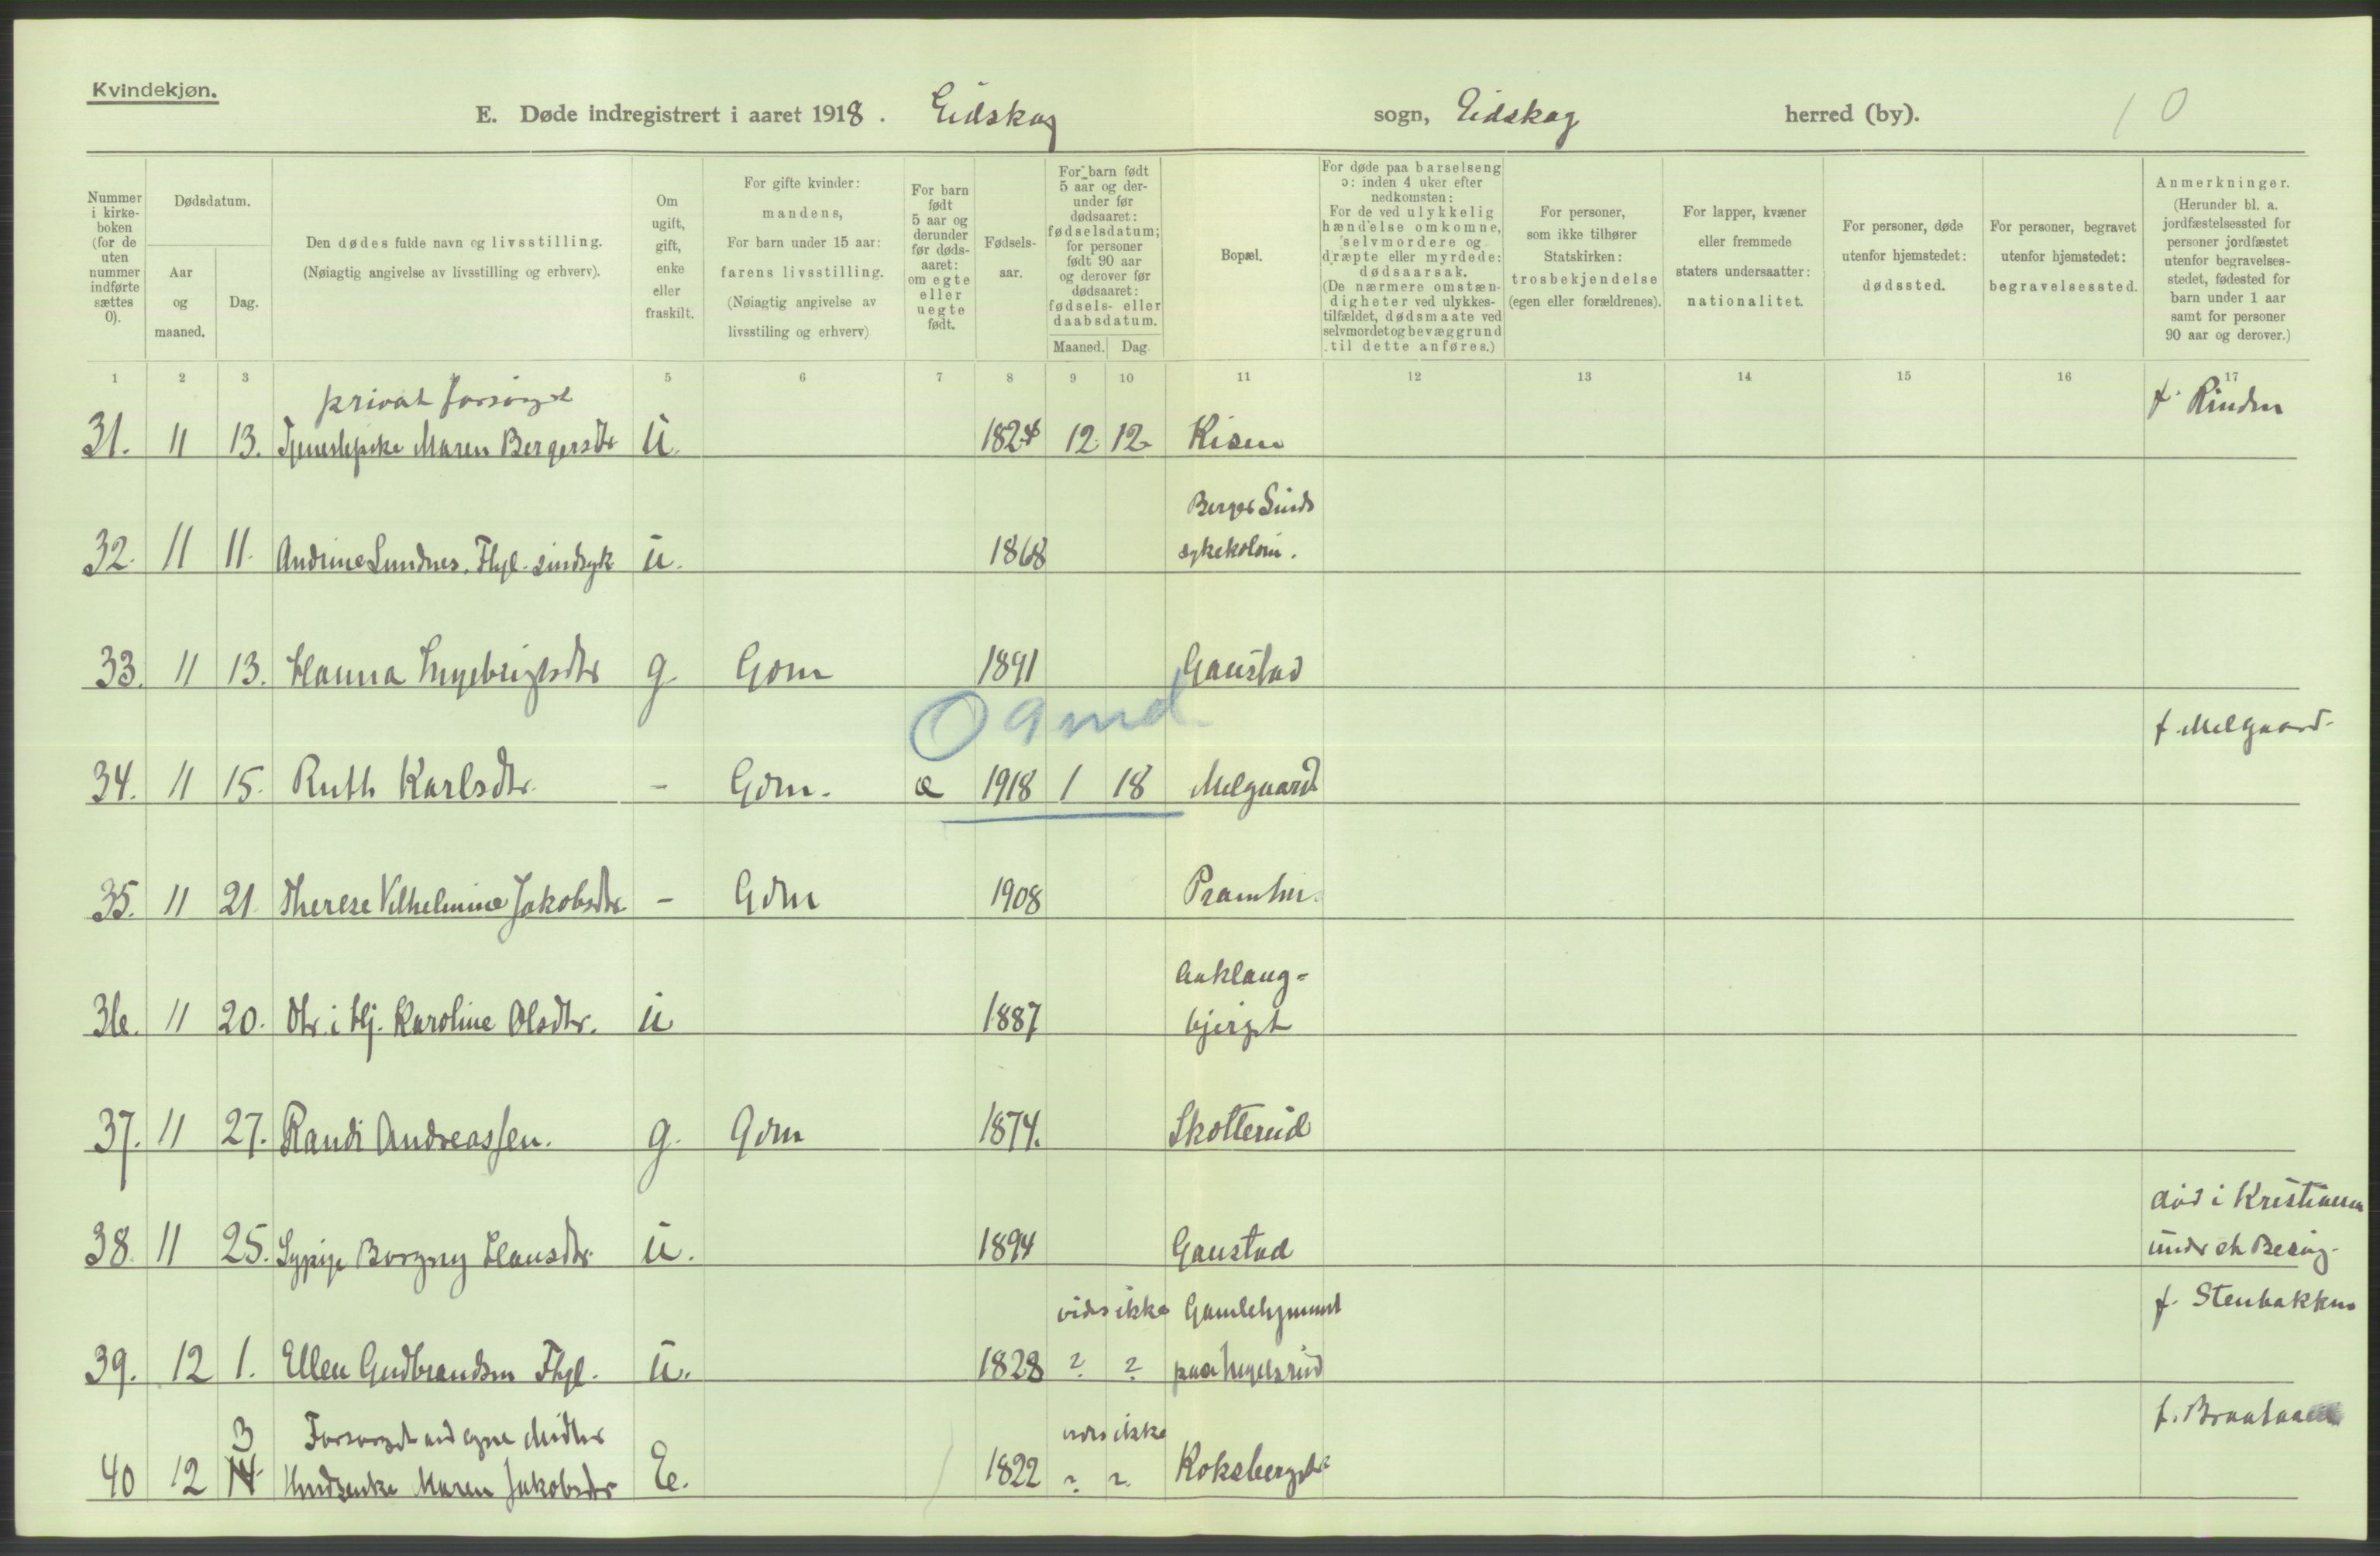 Kvindekjøn.
E. Døde indregistrert i aaret 1918. Eidskog sogn, Eidskog herred (by). 10
Nummer i kirkeboken (for de uten nummer indførte sættes 0).
Dødsdatum.
Aar og maaned.
Dag.
Den dødes fulde navn og livsstilling.
(Nøiagtig angivelse av livsstilling og erhverv).
Om ugift, gift, enke eller fraskilt.
For gifte kvinder: mandens,
For barn under 15 aar: farens livsstilling.
(Nøiagtig angivelse av livsstiling og erhverv)
For barn født 5 aar og derunder før dødsaaret: om egte eller uegte født.
Fødselsaar.
For barn født 5 aar og derunder før dødsaaret: fødselsdatum; for personer født 90 aar og derover før dødsaaret: fødsels- eller daabsdatum.
Maaned. Dag.
Bopæl.
For døde paa barselseng ɔ: inden 4 uker efter nedkomsten:
For de ved ulykkelig hændelse omkomne, selvmordere og dræpte eller myrdede: dødsaarsak.
(De nærmere omstændigheter ved ulykkestilfældet, dødsmaate ved selvmordet og bevæggrund til dette anføres.)
For personer, som ikke tilhører Statskirken: trosbekjendelse (egen eller forældrenes).
For lapper, kvæner eller fremmede staters undersaatter: nationalitet.
For personer, døde utenfor hjemstedet: dødssted.
For personer, begravet utenfor hjemstedet: begravelsessted.
Anmerkninger.
(Herunder bl. a. jordfæstelsessted for personer jordfæstet utenfor begravelsesstedet, fødested for barn under 1 aar samt for personer 90 aar og derover.)
1 2 3 5 6 7 8 9 10 11 12 13 14 15 16 17
privat forsørget f. Rinden
31. 11 13. Maren Bergersdtr u. 1824 12 12 Kisen
Berger Sinds
32. 11 11. Andrine Sundnes. Fhgl. sindsyk u. 1868 sykekoloni.
33. 11 13. Hanna Ingebrigtsdtr g. Gdm 1891 Gaustad
0 9 md. f. Melgaard.
34. 11 15. Ruth Karlsdtr. - Gdm. e 1918 1 18 Melgaard
35. 11 21. Therese Vilhelmine Jakobsdtr. - Gdm 1908
36. 11 20. Dtr. i Hj. Karoline Olsdtr. u 1887 bjerget
37. 11 27. Randi Andreassen. g. Gdm 1874. Skotterud
død i Kristiania
38. 11 25. Sypige Borgny Hansdtr. u. 1894 Gaustad under et Besøg.
vides ikke Gamlehjemmet f. Stenbakken
39. 12 1. Ellen Gudbrandsen Fhgl. u. 1828 ? ? paa
3 Forsørget ved egne Midler vides ikke
40 12 14 Maren Jakobsdtr E. 1822 ? ?